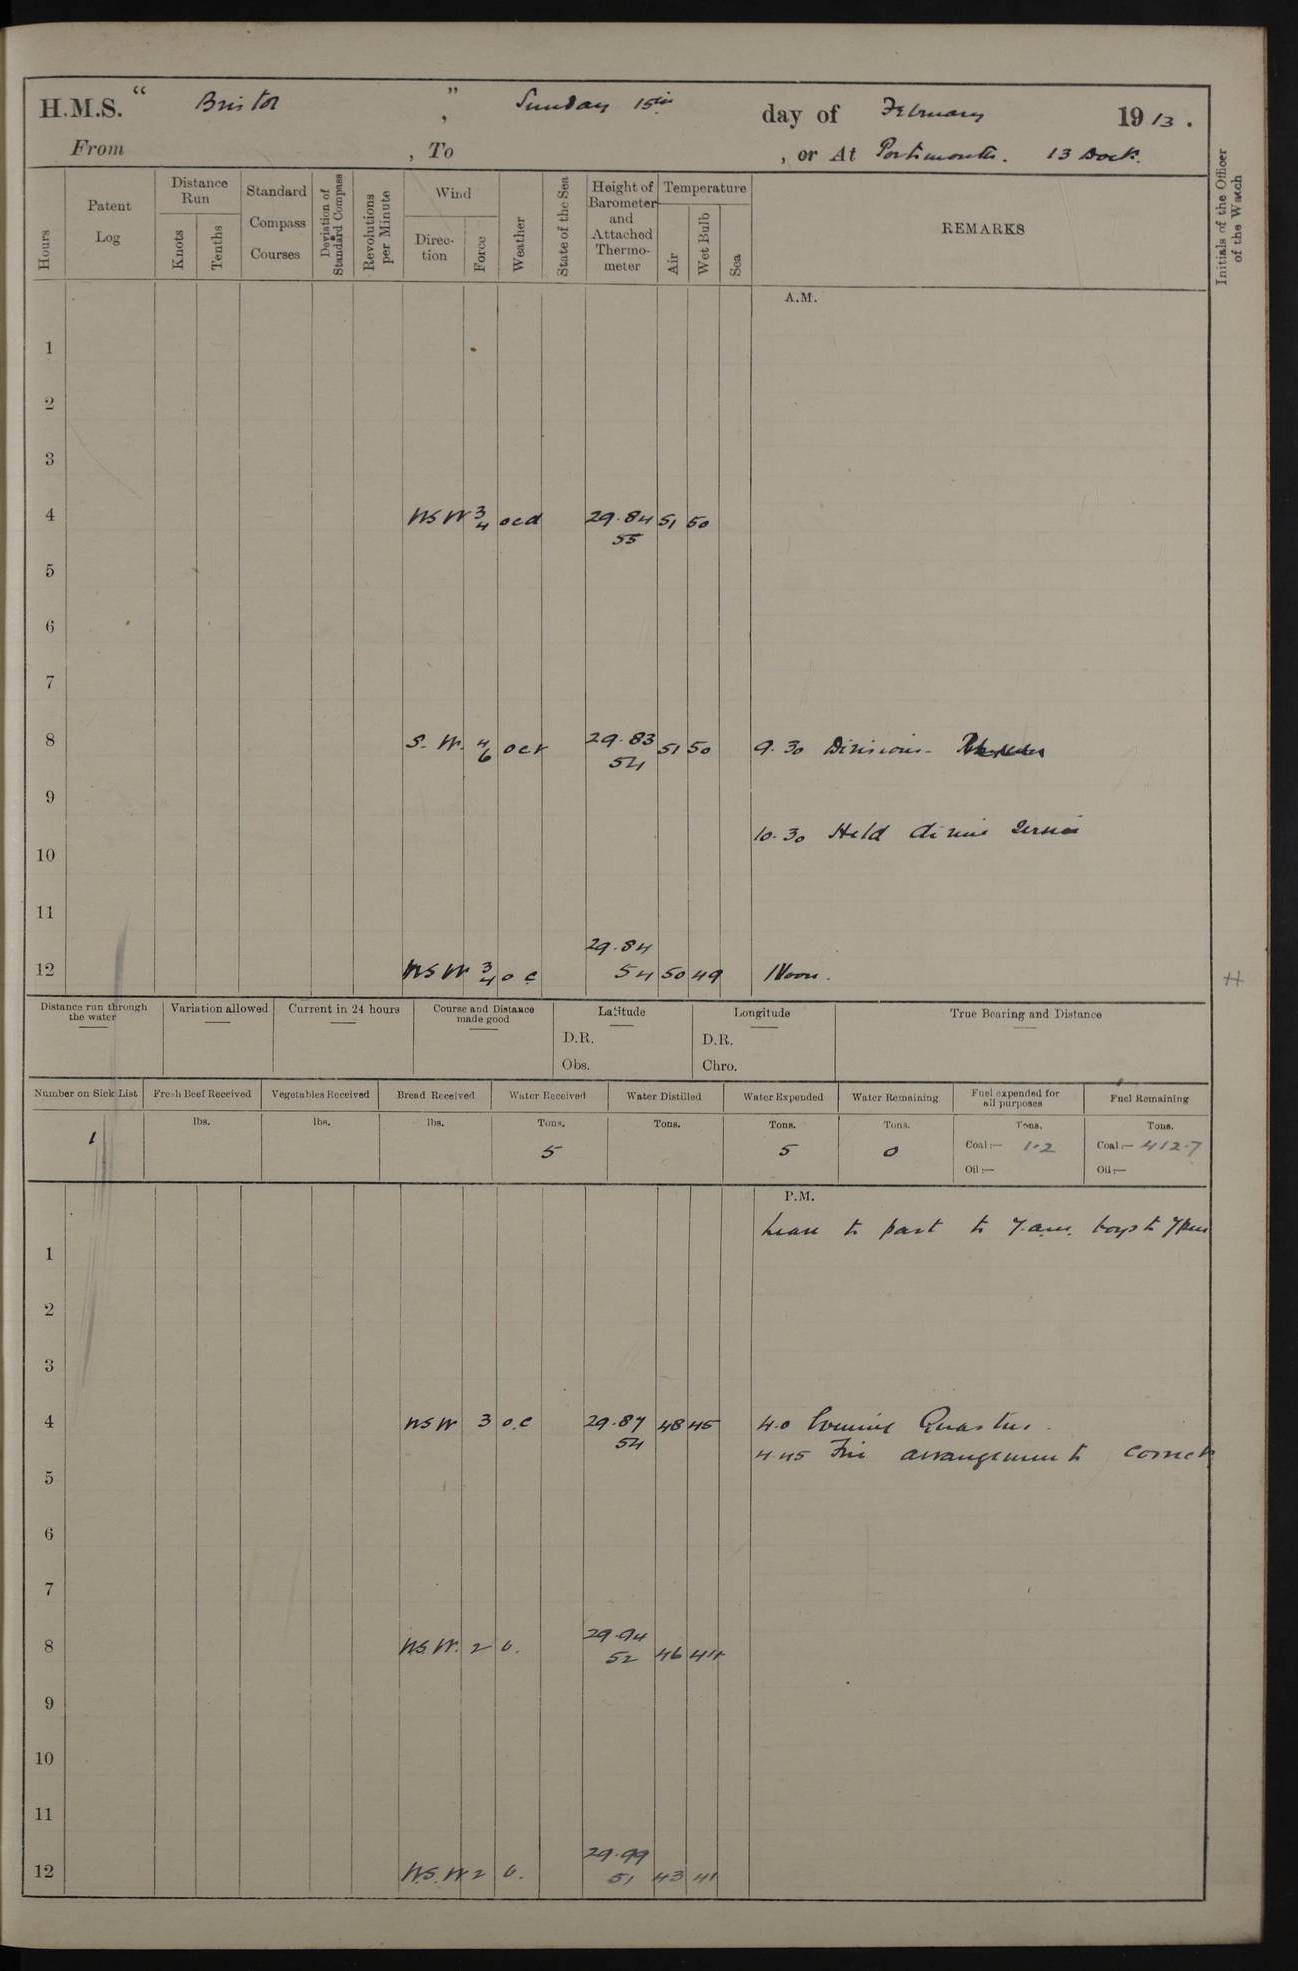 H.M.S. " Bristol ", Sunday 15th day of February 1913.
From , To , or At Portsmouth. 13 Dock.
Hours Patent Log Distance Run Knots Tenths Standard Compass Courses Deviation of Standard Compass Revolutions per Minute Wind Direc-tion Force Weather State of the Sea Height of Barometer and Attached Thermo-meter Temperature Air Wet Bulb Sea REMARKS Initials of the Officer of the Watch
A.M.
1
2
3
4 WSW 3/4 ocd 29.84 51 50
55
5
6
7
8 S.W. 4/6 ocr 29.83 51 50 9.30 Divisions.
54
9
10.30 Held divine service
10
11
29.84
12 WSW 3/4 o c 54 50 49 Noon. H
Distance run through the water Variation allowed Current in 24 hours Course and Distance made good Latitude Longitude True Bearing and Distance
D.R. D.R.
Obs. Chro.
Number on Sick List Fresh Beef Received Vegetables Received Bread Received Water Received Water Distilled Water Expended Water Remaining Fuel expended for all purposes Fuel Remaining
lbs. lbs. lbs. Tons. Tons. Tons. Tons. Tons. Tons.
1 5 5 0 Coal:— 1.2 Coal:— 412.7
Oil:— Oil:—
P.M.
Leave to part to 7.am. boys to 7pm
1
2
3
4 WSW 3 o.c 29.87 48 45 4.0 Evening Quarters.
54 4.45 Fire arrangements correct
5
6
7
29.94
8 WSW. 2 b. 52 46 44
9
10
11
29.99
12 W.S.W 2 b. 51 43 41